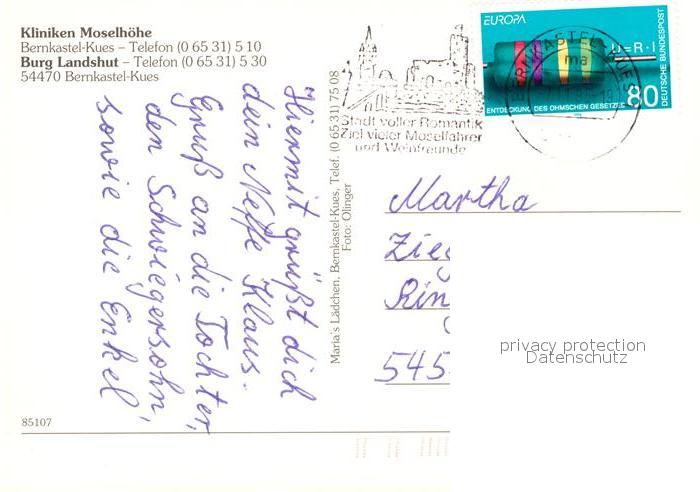 Kliniken Moselhöhe
Bernkastel-Kues – Telefon (0 65 31) 5 10
Burg Landshut – Telefon (0 65 31) 5 30
54470 Bernkastel-Kues
Hiermit grüßt dich
dein Neffe Klaus.
Gruß an die Tochter,
den Schwiegersohn,
sowie die Enkel
85107
Maria's Lädchen, Bernkastel-Kues, Telef. (0 65 31) 75 08
Foto: Olinger
Stadt voller Romantik
Ziel vieler Moselfahrer
und Weinfreunde
BERNKASTEL-KUES
ma
EUROPA
U=R·I
ENTDECKUNG DES OHMSCHEN GESETZES
80
DEUTSCHE BUNDESPOST
Martha
Zieg
Rin
545
privacy protection
Datenschutz